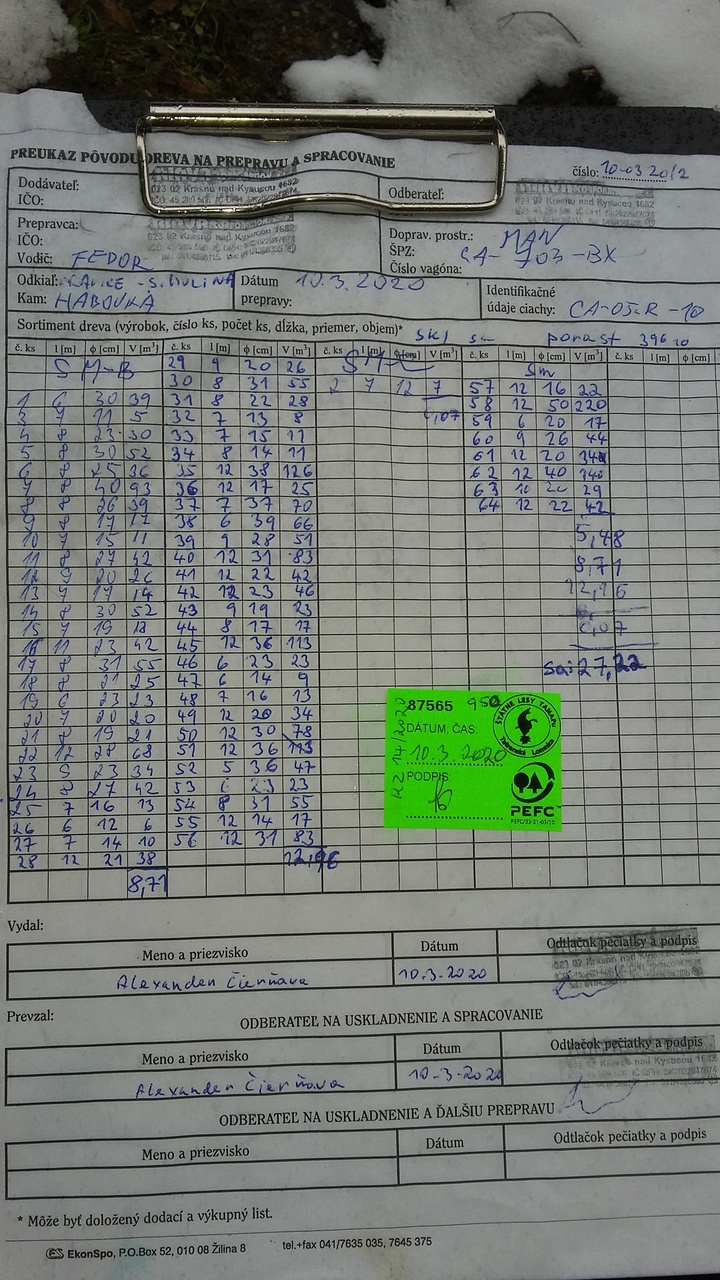 PREUKAZ PÔVODU DREVA NA PREPRAVU A SPRACOVANIE
číslo: 10-03 20/2
Dodávateľ:
IČO:
023 02 Krásno nad Kysucou 1682
Odberateľ:
Prepravca:
IČO:
Vodič: FEDOR
023 02 Krásno nad Kysucou 1682
Doprav. prostr.: MAN
ŠPZ: CA-703-BX
Číslo vagóna:
Odkiaľ:
Kam: HABOVKA
Dátum prepravy: 10.3.2020
Identifikačné údaje ciachy: CA-05-R-10
Sortiment dreva (výrobok, číslo ks, počet ks, dĺžka, priemer, objem)*
porast
č. ks l [m] ϕ [cm] V [m³] č. ks l [m] ϕ [cm] V [m³] č. ks l [m] ϕ [cm] V [m³] č. ks l [m] ϕ [cm] V [m³] č. ks l [m] ϕ [cm]
29 9 20 26
30 8 31 55 2 7 12 7 57 12 16 22
1 6 30 39 31 8 22 28 58 12 50 220
3 7 11 5 32 7 13 8 59 6 20 17
4 8 23 30 33 7 15 11 60 9 26 44
5 8 30 52 34 8 14 11 61 12 20 34
6 8 25 36 35 12 38 126 62 12 40
7 8 40 93 36 12 17 25 63 20 29
8 8 26 39 37 7 37 70 64 12 22 42
9 8 17 17 38 6 39 66 5,48
10 7 15 11 39 9 28 51
11 8 27 42 40 12 31 83 8,71
12 9 20 26 41 12 22 42
13 7 17 14 42 12 23 46
14 8 30 52 43 9 19 23
15 7 19 18 44 8 17 17
16 11 23 42 45 12 36 113
17 8 31 55 46 6 23 23 27,22
18 8 21 25 47 6 14 9
19 6 23 23 48 7 16 13
20 7 20 20 49 12 20 34
21 8 19 21 50 12 30 78
22 12 28 68 51 12 36 113
23 9 23 34 52 5 36 47
24 8 27 42 53 6 23 23
25 7 16 13 54 8 31 55
26 6 12 6 55 12 14 17
27 7 14 10 56 12 31 83
28 12 21 38 12,96
8,71
87565
ŠTÁTNE LESY TANAPU
Tatranská Lomnica
DÁTUM, ČAS:
10.3.2020
PODPIS
PEFC
Vydal:
Meno a priezvisko Dátum Odtlačok pečiatky a podpis
Alexander Čierňava 10.3.2020
Prevzal:
ODBERATEĽ NA USKLADNENIE A SPRACOVANIE
Meno a priezvisko Dátum Odtlačok pečiatky a podpis
Alexander Čierňava 10-3-2020
ODBERATEĽ NA USKLADNENIE A ĎALŠIU PREPRAVU
Meno a priezvisko Dátum Odtlačok pečiatky a podpis
* Môže byť doložený dodací a výkupný list.
EkonSpo, P.O.Box 52, 010 08 Žilina 8 tel.+fax 041/7635 035, 7645 375